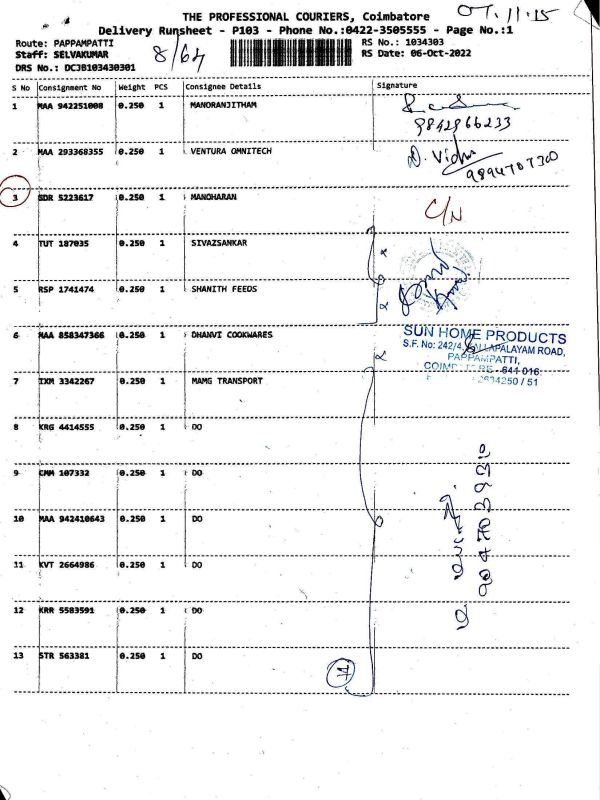 THE PROFESSIONAL COURIERS, Coimbatore
07.11.15
Delivery Runsheet - P103 - Phone No.:0422-3505555 - Page No.:1
Route: PAPPAMPATTI
RS No.: 1034303
Staff: SELVAKUMAR
8/64
RS Date: 06-Oct-2022
DRS No.: DCJB103430301
S No Consignment No Weight PCS Consignee Details Signature
1 MAA 942251008 0.250 1 MANORANJITHAM
9842966233
2 MAA 293368355 0.250 1 VENTURA OMNITECH
D. Vidhu
9894707300
3 GDR 5223617 0.250 1 MANOHARAN
C/N
4 TUT 187035 0.250 1 SIVAZSANKAR
5 RSP 1741474 0.250 1 SHANITH FEEDS
6 MAA 858347366 0.250 1 DHANVI COOKWARES
SUN HOME PRODUCTS
S.F. No: 242/4, PALAYAM ROAD,
PAPPAMPATTI,
641 016
2634250 / 51
7 IXM 3342267 0.250 1 MAMG TRANSPORT
8 KRG 4414555 0.250 1 DO
9 CMM 107332 0.250 1 DO
10 MAA 942410643 0.250 1 DO
11 KVT 2664986 0.250 1 DO
12 KRR 5583591 0.250 1 DO
13 STR 563381 0.250 1 DO